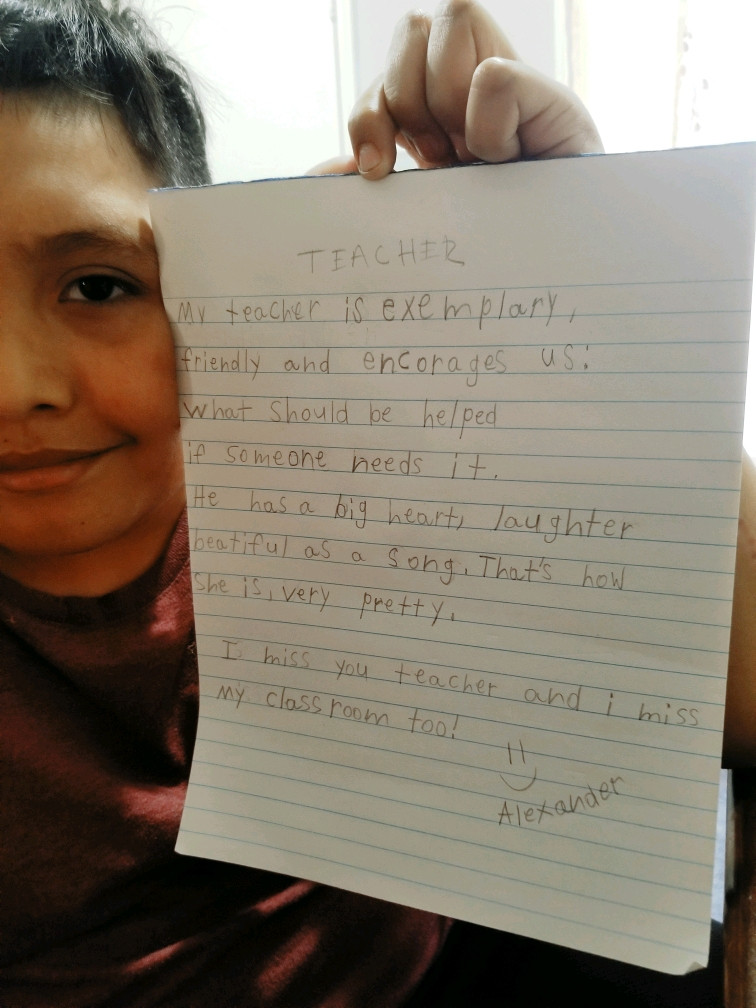 TEACHER
My teacher is exemplary,
friendly and encorages us:
what should be helped
if someone needs it.
He has a big heart, laughter
beatiful as a song. That's how
She is, very pretty.
I miss you teacher and i miss
my classroom too!
Alexander